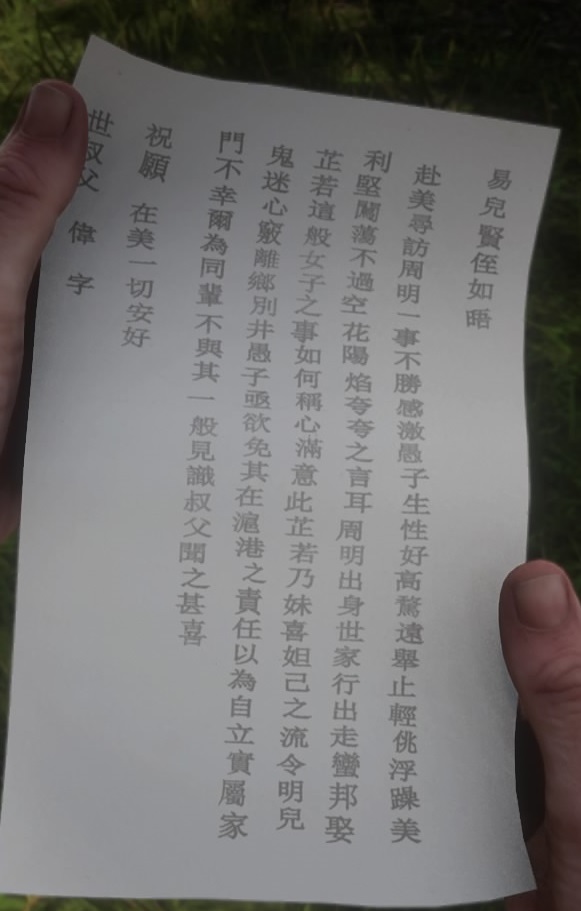 易兒賢侄如晤
赴美尋訪周明一事不勝感激愚子生性好高騖遠舉止輕佻浮躁美
利堅闖蕩不過空花陽焰夸夸之言耳周明出身世家行出走蠻邦娶
芷若這般女子之事如何稱心滿意此芷若乃妹喜妲己之流令明兒
鬼迷心竅離鄉別井愚子亟欲免其在滬港之責任以為自立實屬家
門不幸爾為同輩不與其一般見識叔父聞之甚喜
祝願 在美一切安好
世叔父 偉 字